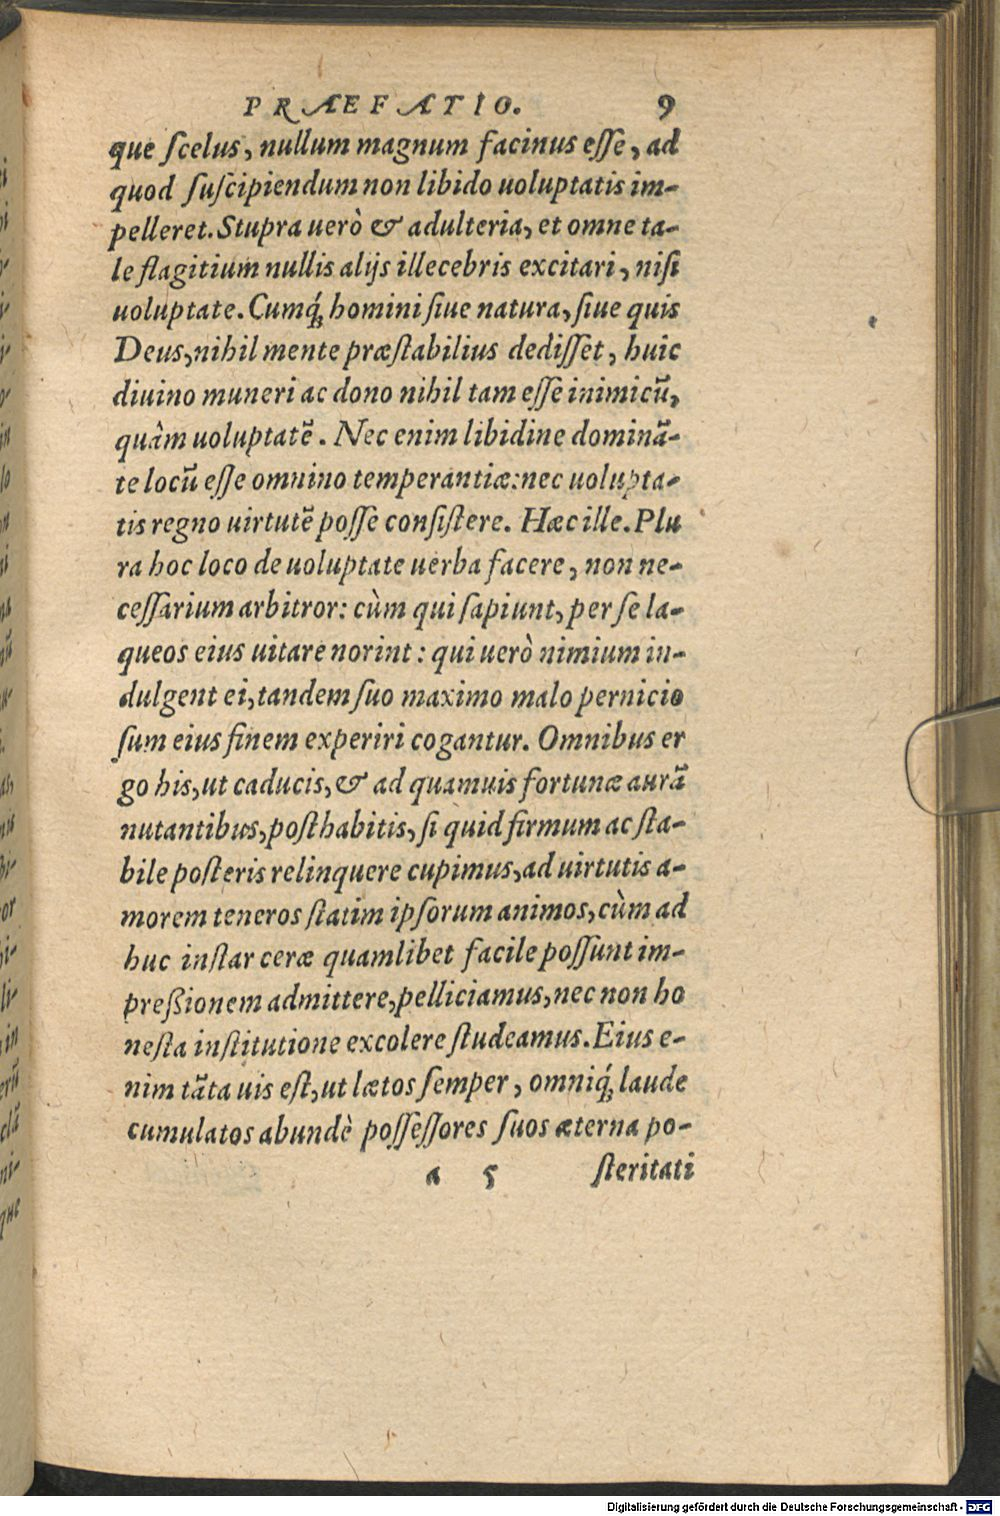 PRAEFATIO. 9
que ſcelus, nullum magnum facinus eſſe, ad
quod ſuſcipiendum non libido uoluptatis im-
pelleret. Stupra uerò & adulteria, et omne ta-
le flagitium nullis alijs illecebris excitari, niſi
uoluptate. Cumq́; homini ſiue natura, ſiue quis
Deus, nihil mente præſtabilius dediſſet, huic
diuino muneri ac dono nihil tam eſſe inimicū,
quàm uoluptatē. Nec enim libidine dominā-
te locū eſſe omnino temperantiæ: nec uolupta-
tis regno uirtutē poſſe conſiſtere. Hæc ille. Plu
ra hoc loco de uoluptate uerba facere, non ne-
ceſſarium arbitror: cùm qui ſapiunt, per ſe la-
queos eius uitare norint: qui uerò nimium in-
dulgent ei, tandem ſuo maximo malo pernicio
ſum eius finem experiri cogantur. Omnibus er
go his, ut caducis, & ad quamuis fortunæ aurā
nutantibus, poſthabitis, ſi quid firmum ac ſta-
bile poſteris relinquere cupimus, ad uirtutis a-
morem teneros ſtatim ipſorum animos, cùm ad
huc inſtar ceræ quamlibet facile poſſunt im-
preſsionem admittere, pelliciamus, nec non ho
neſta inſtitutione excolere ſtudeamus. Eius e-
nim tāta uis eſt, ut lætos ſemper, omniq́; laude
cumulatos abundè poſſeſſores ſuos æterna po-
a 5 ſteritati
Digitalisierung gefördert durch die Deutsche Forschungsgemeinschaft - DFG